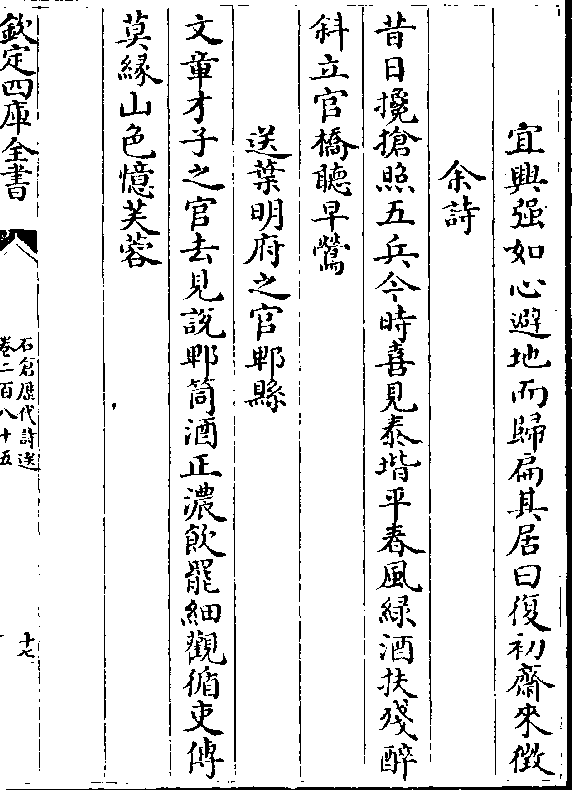 宜興强如心避地而歸扁其居曰復初齋來徴
余詩
昔日攙搶照五兵今時喜見泰堦平春風緑酒扶殘醉
斜立官橋聽早鶯
送葉明府之官郫縣
文章才子之官去見說郫筒酒正濃飲罷細觀循吏傳
莫緣山色憶芙蓉
欽定四庫全書
石倉歴代詩選
卷二百八十五
十七